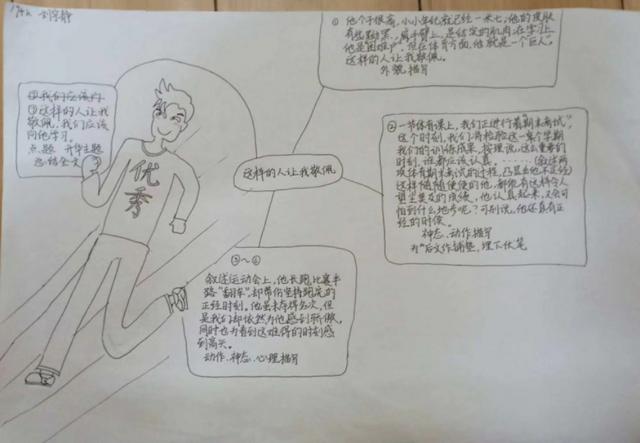 刘宇静
① 他个子很高，小小年纪就已经一米七，他的皮肤
有些黝黑，肩手臂上，是结实的肌肉，在学习上
他是困难户，但在体育方面，他就是一个巨人。
这样的人让我敬佩。
外貌描写
我们应该向
⑦这样的人让我
敬佩，我们应该
向他学习。
点题 升华主题
总结全文
优
秀
这样的人让我敬佩
② 一节体育课上，我们正进行着期末考试，
这个时刻，我们要检验这一整个学期
我们的训练成果，按理说，这么重要的
时刻，谁都应该认真。……（叙述两
次体育期末考试的过程，凸显出他不正经）
这样随随便便的他，都能有这样令人
望尘莫及的成绩，他认真起来，又会可
怕到什么地步呢？可别说，他还真有正
经的时候。
神态、动作描写
为后文作铺垫，埋下伏笔
③～⑥
叙述运动会上，他长跑比赛半
路“翻车”，却带伤坚持跑完的
正经时刻。他虽未夺得名次，但
是我们却依然为他感到骄傲，
同时也为看到这难得的时刻感
到高兴。
动作、神态、心理描写